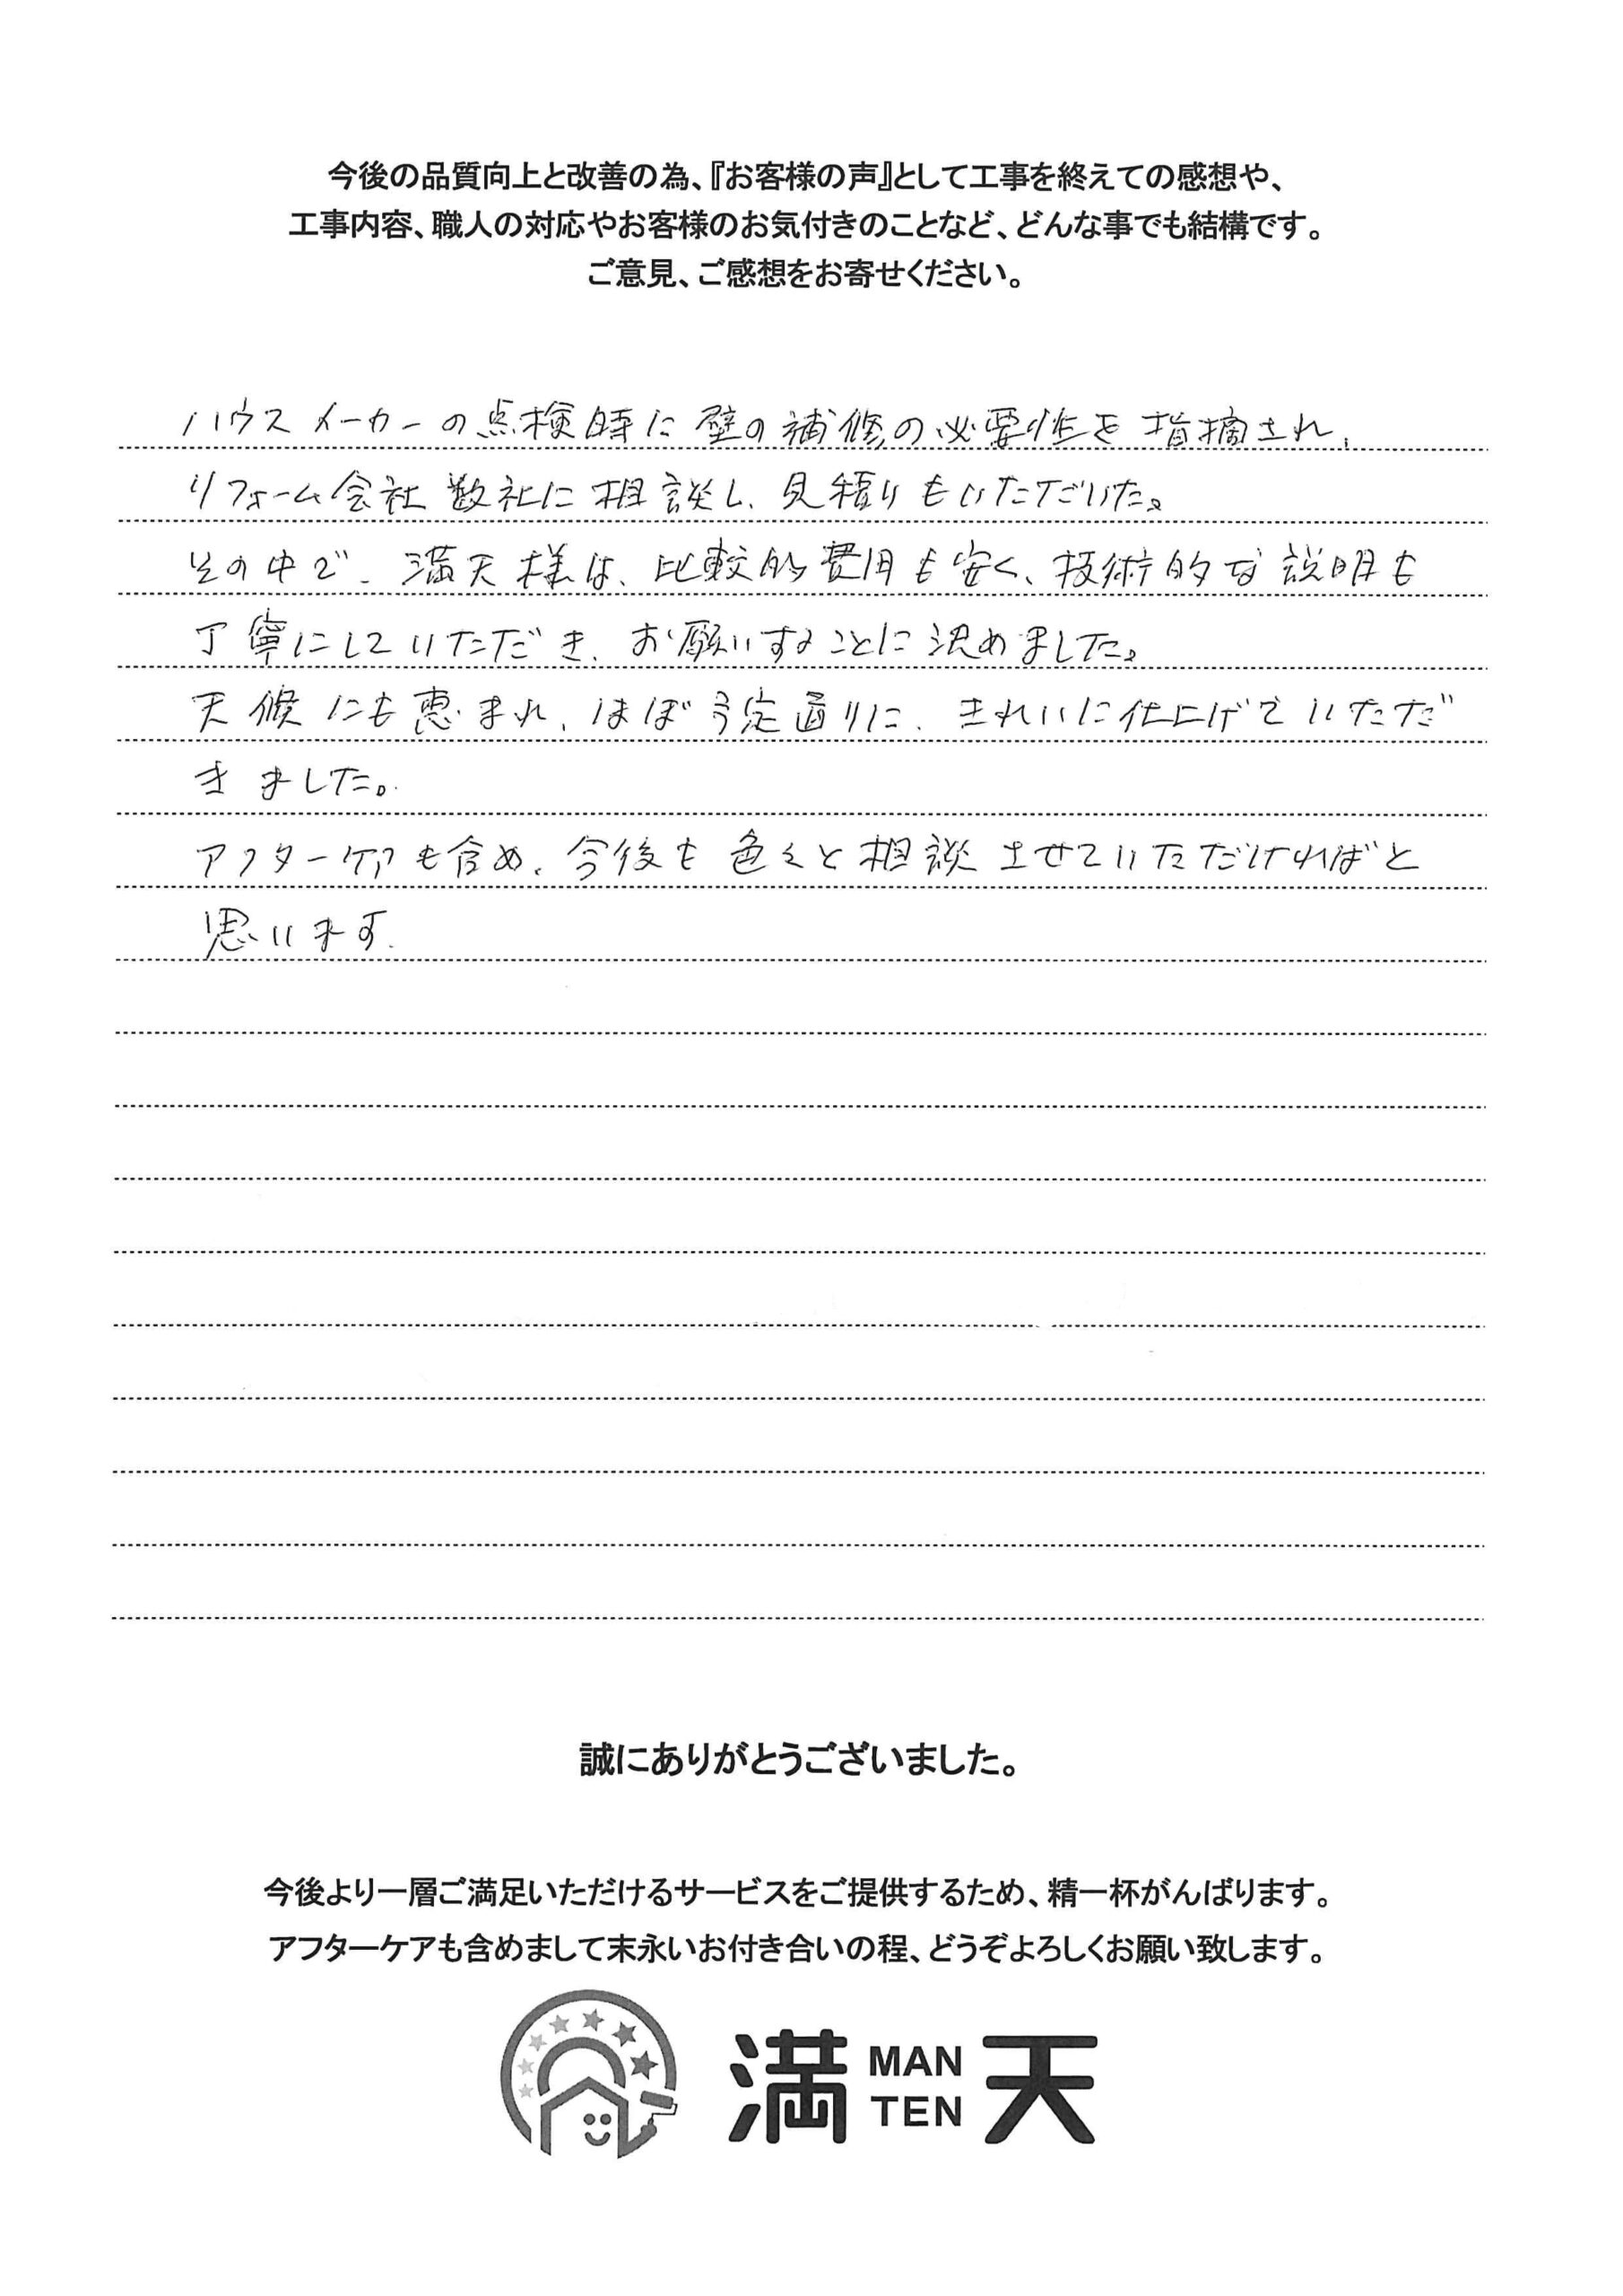 今後の品質向上と改善の為、『お客様の声』として工事を終えての感想や、
工事内容、職人の対応やお客様のお気付きのことなど、どんな事でも結構です。
ご意見、ご感想をお寄せください。
ハウスメーカーの点検時に壁の補修の必要性を指摘され、
リフォーム会社数社に相談し、見積りもいただいた。
その中で、満天様は、比較的費用も安く、技術的な説明も
丁寧にしていただき、お願いすることに決めました。
天候にも恵まれ、ほぼ予定通りに、きれいに仕上げていただ
きました。
アフターケアも含め、今後も色々と相談させていただければと
思います。
誠にありがとうございました。
今後より一層ご満足いただけるサービスをご提供するため、精一杯がんばります。
アフターケアも含めまして末永いお付き合いの程、どうぞよろしくお願い致します。
満 MAN TEN 天